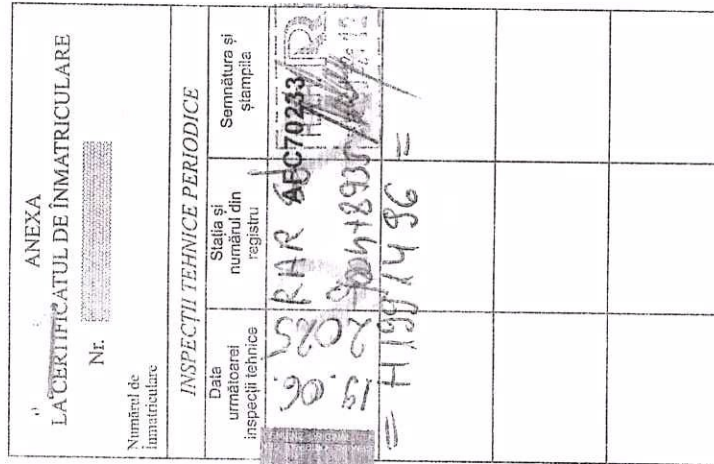 ANEXA
LA CERTIFICATUL DE ÎNMATRICULARE
Nr.
Numărul de
înmatriculare
INSPECȚII TEHNICE PERIODICE
Data
următoarei
inspecții tehnice
Stația și
numărul din
registru
Semnătura și
ștampila
19.06.
2025
RAR
AFC70233
R
= H1991496 =